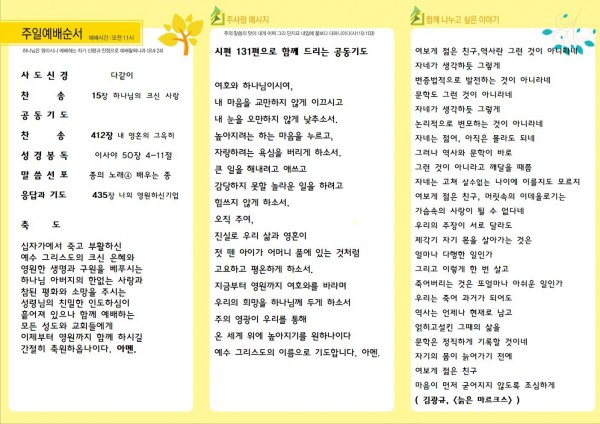 주일예배순서
예배시간 : 오전 11시
하나님은 영이시니 예배하는 자가 신령과 진정으로 예배할찌니라 (요4:24)
사 도 신 경 다같이
찬 송 15장 하나님의 크신 사랑
공 동 기 도
찬 송 412장 내 영혼의 그윽히
성 경 봉 독 이사야 50장 4-11절
말 씀 선 포 종의 노래④ 배우는 종
응답과 기도 435장 나의 영원하신기업
축 도
십자가에서 죽고 부활하신
예수 그리스도의 크신 은혜와
영원한 생명과 구원을 베푸시는
하나님 아버지의 한없는 사랑과
참된 평화와 소망을 주시는
성령님의 친밀한 인도하심이
흩어져 있으나 함께 예배하는
모든 성도와 교회들에게
이제부터 영원까지 함께 하시길
간절히 축원하옵나이다. 아멘.
주사랑 메시지
주의 말씀의 맛이 내게 어찌 그리 단지요 내입에 꿀보다 더하니이다(시119:103)
시편 131편으로 함께 드리는 공동기도
여호와 하나님이시여,
내 마음을 교만하지 않게 이끄시고
내 눈을 오만하지 않게 낮추소서.
높아지려는 하는 마음을 누르고,
자랑하려는 욕심을 버리게 하소서.
큰 일을 해내려고 애쓰고
감당하지 못할 놀라운 일을 하려고
힘쓰지 않게 하소서.
오직 주여,
진실로 우리 삶과 영혼이
젖 뗀 아이가 어머니 품에 있는 것처럼
고요하고 평온하게 하소서.
지금부터 영원까지 여호와를 바라며
우리의 희망을 하나님께 두게 하소서
주의 영광이 우리를 통해
온 세계 위에 높아지기를 원하나이다
예수 그리스도의 이름으로 기도합니다. 아멘.
함께 나누고 싶은 이야기
여보게 젊은 친구,역사란 그런 것이 아니라네
자네가 생각하듯 그렇게
변증법적으로 발전하는 것이 아니라네
문학도 그런 것이 아니라네
자네가 생각하듯 그렇게
논리적으로 변모하는 것이 아니라네
자네는 젊어, 아직은 몰라도 되네
그러나 역사와 문학이 바로
그런 것이 아니라고 깨달을 때쯤
자네는 고쳐 살수없는 나이에 이를지도 모르지
여보게 젊은 친구, 머릿속의 이데올로기는
가슴속의 사랑이 될 수 없다네
우리의 주장이 서로 달라도
제각기 자기 몫을 살아가는 것은
얼마나 다행한 일인가
그리고 이렇게 한 번 살고
죽어버리는 것은 또얼마나 아쉬운 일인가
우리는 죽어 과거가 되어도
역사는 언제나 현재로 남고
얽히고설킨 그때의 삶을
문학은 정직하게 기록할 것이네
자기의 몸이 늙어가기 전에
여보게 젊은 친구
마음이 먼저 굳어지지 않도록 조심하게
( 김광규, <늙은 마르크스> )